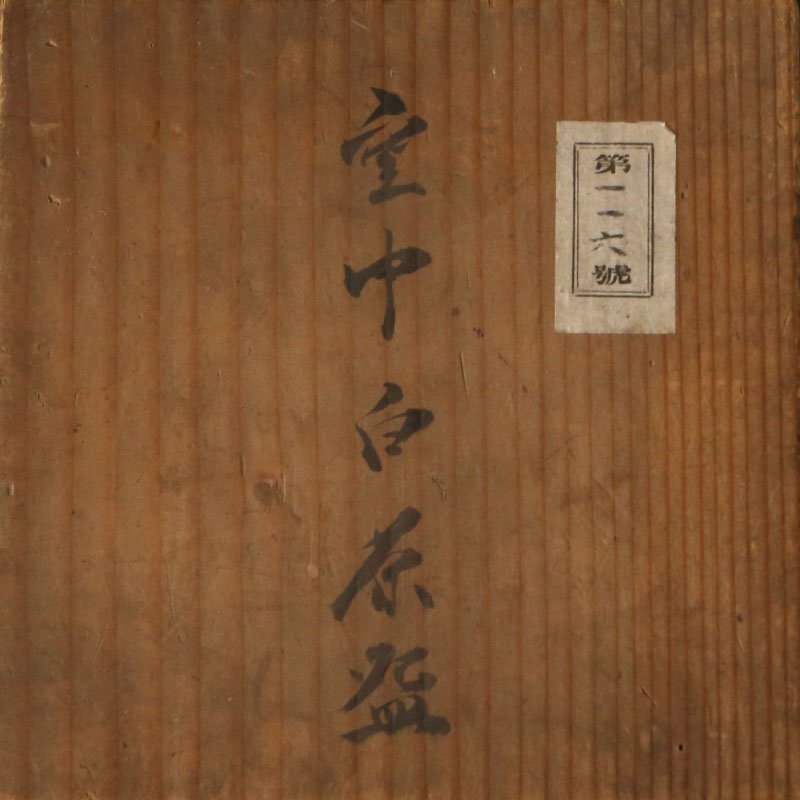 第一一六號
空中白茶盌